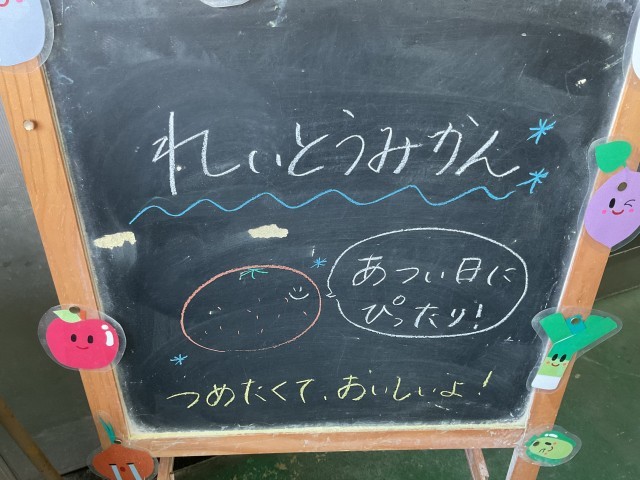 れいとうみかん
あつい日に
ぴったり!
つめたくて、おいしいよ!